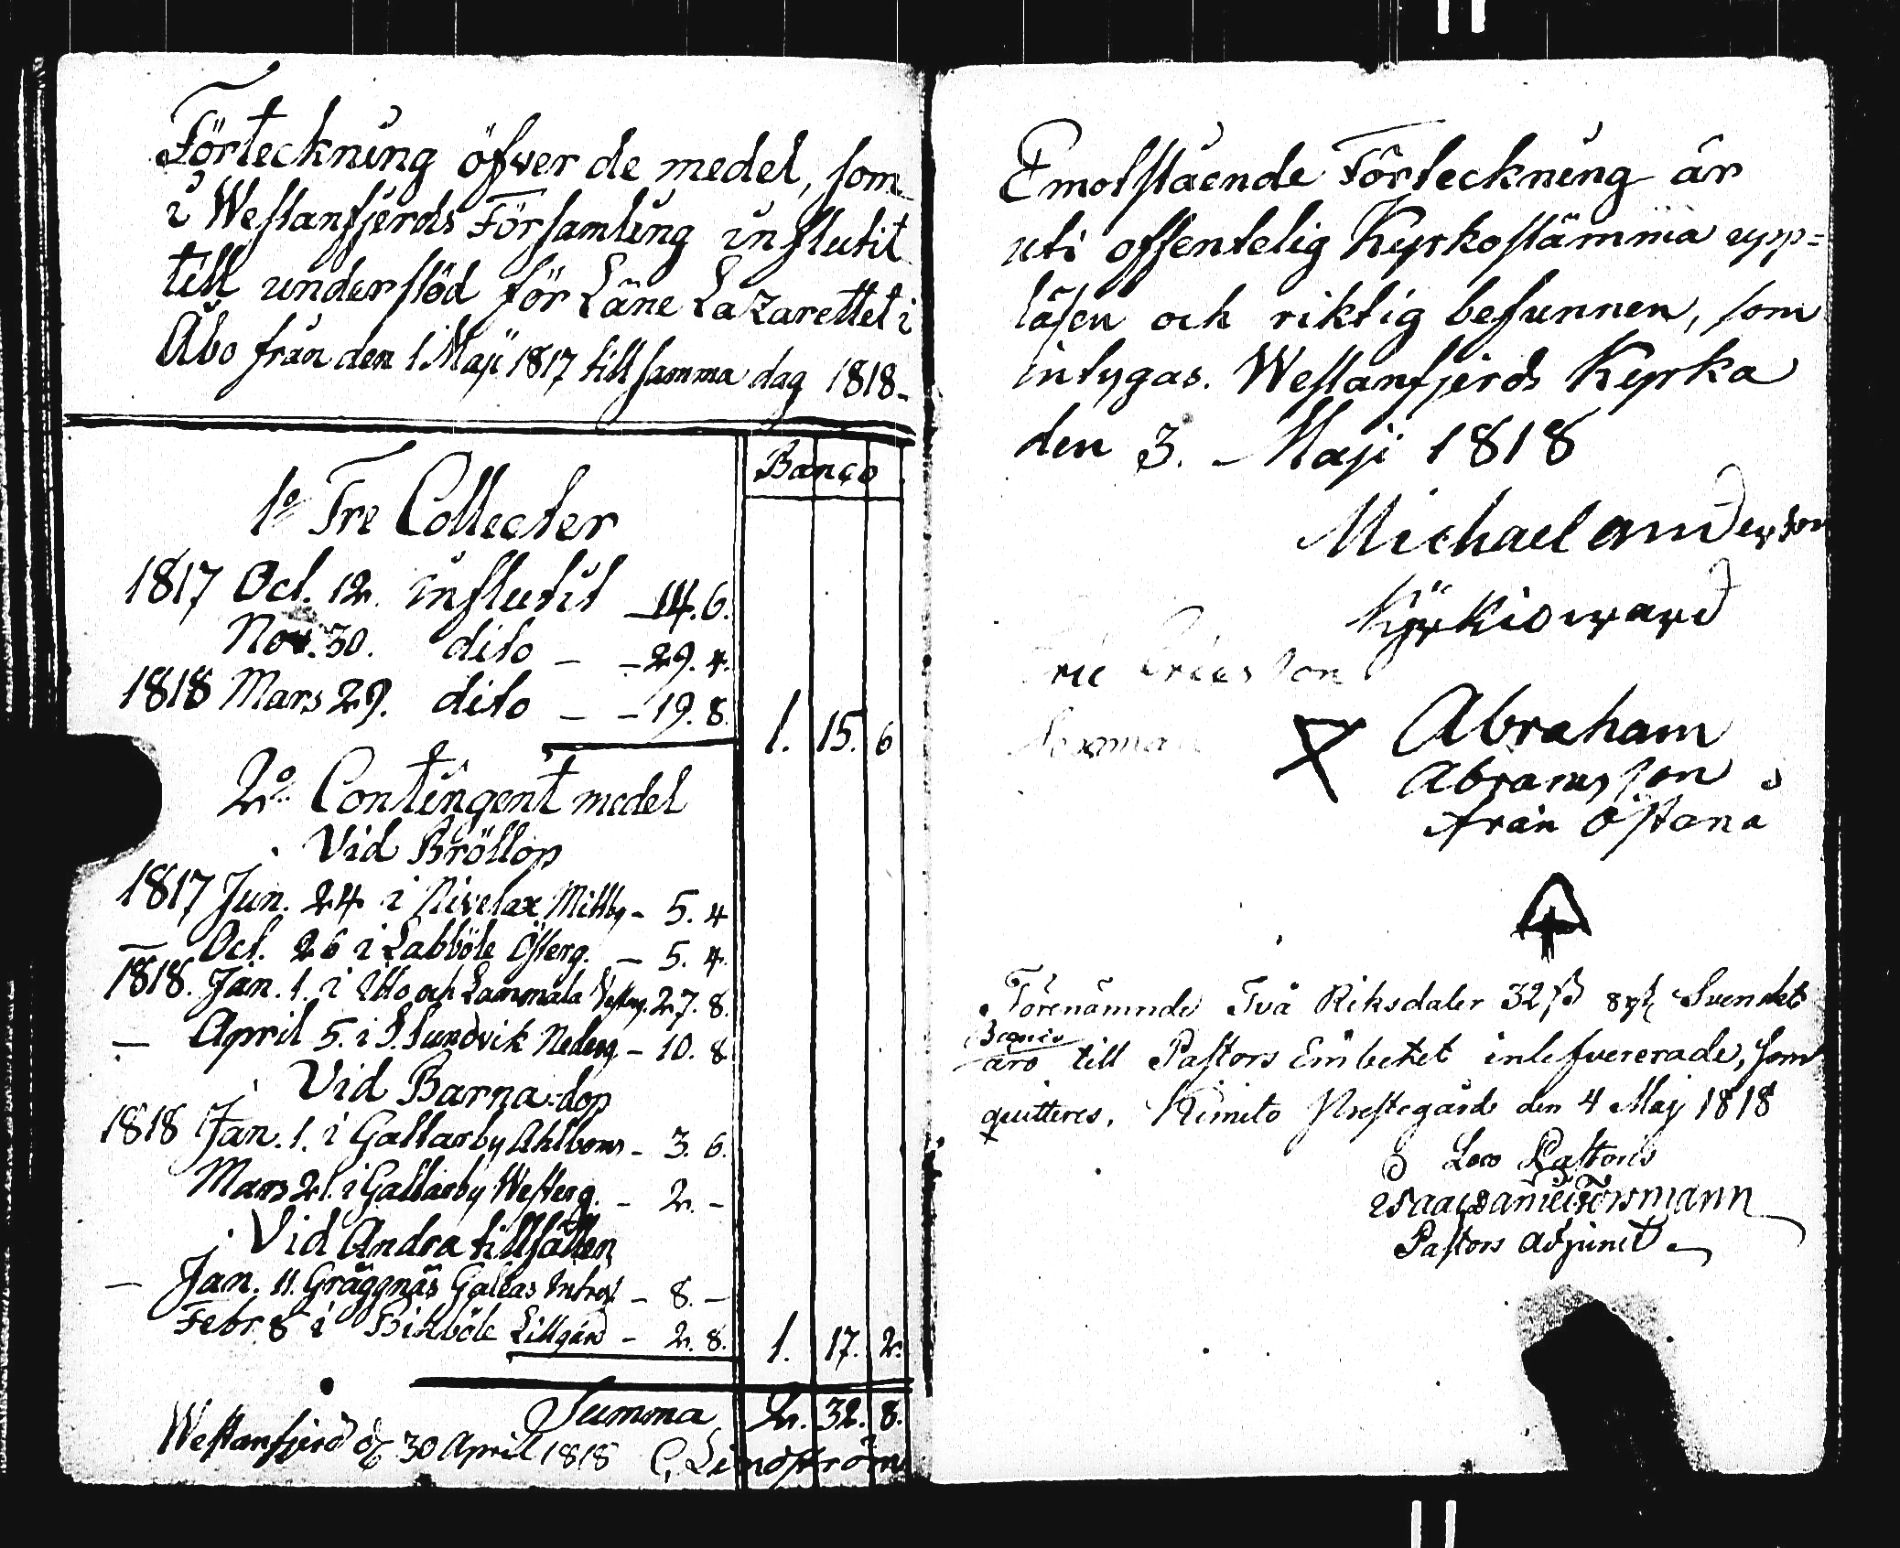 Förteckning öfver de medel, som
i Westanfjerds Församling influtit
till understöd för Läne Lazarettet i
Åbo från den 1 Maji 1817 till samma dag 1818.
Banco
1º Tre Collecter
1817 Oct. 12. influtit – 14. 6.
Nov. 30. dito – – 29. 4.
1818 Mars 29. dito – – 19. 8.
1. 15. 6
2º Contingent medel
Vid Bröllop
1817 Jun. 24 i Nivelax Mittby – 5. 4
— Oct. 26 i Labböle Österg. – 5. 4.
1818. Jan. 1. i Illo och Lammala 27. 8.
— April 5. i S. Sundvik Nederg – 10. 8
Vid Barna-dop
1818 Jan. 1. i Gallarby Ahlboms – 3. 6.
Mars 21. i Gallarby Westerg. – 2. –
Vid Andra tillfällen
— Jan. 11. Gräggnäs Galeas – 8. –
Febr 8 i Billböle Lillgård – 2. 8.
1. 17. 2.
Summa 2. 32. 8.
Westanfjerd d. 30 April 1818 C. Lindström
Emotstående Förteckning är
uti offentelig Kyrkostämma upp=
läsen och riktig befunnen, som
intygas. Westanfjerds Kyrka
den 3. Maji 1818
Michael anderson
Kyrkioward
Eric Ericsson
Sexman
Abraham
Abramsson
från Östanå
Förenämnde Två Riksdaler 32 ß 8 rst Svenskt
Banco
äro till Pastors Embetet inlefvererade, som
quitteres. Kimito Prestegård den 4 Maj 1818
Loco Pastoris
Isaac Daniel Forsmann
Pastors adjunct